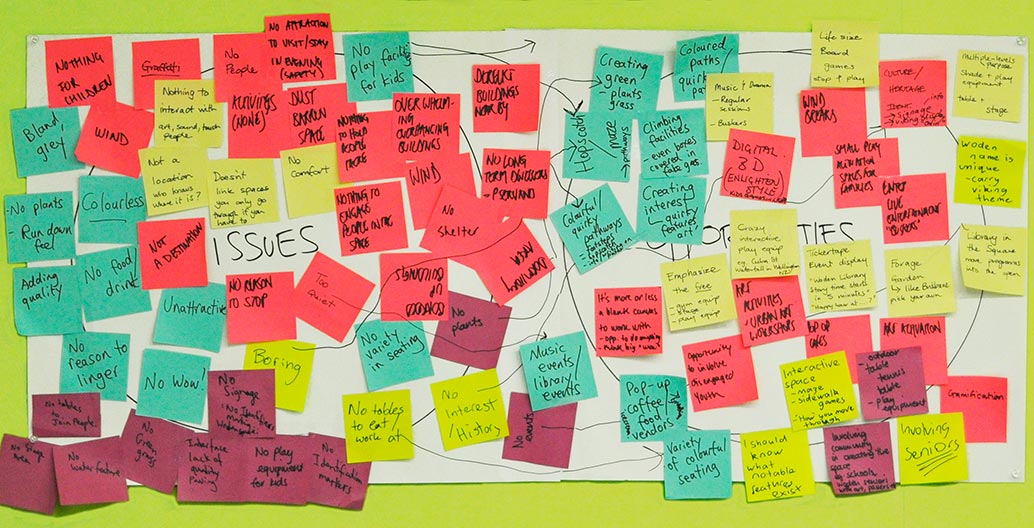 NOTHING
FOR
CHILDREN
Graffiti
No
People
NO ATTRACTION
TO VISIT/STAY
IN EVENING
(SAFETY)
No
play facilities
for kids
Bland/
grey
WIND
Nothing to
interact with
art, sound, touch
People
ACTIVITIES
(NONE)
DUST
BARREN
SPACE
NOTHING
TO HOLD
PEOPLE
THERE
OVER WHELM-
ING
OVERHANGING
BUILDINGS
DERELICT
BUILDINGS
NEARBY
- No plants
- Run down
feel
Colourless
Not a
location
who knows
where it is?
Doesnt
link spaces
you only go
through if you
have to
No
Comfort
NOTHING TO
ENGAGE
PEOPLE IN THE
SPACE
WIND
NO LONG
TERM DWELLERS
No
Shelter
NOT
A DESTINATION
ISSUES
Adding
quality
No food
drink
Unattractive
NO REASON
TO STOP
Too
Quiet
BOARDED UP
BUILDINGS
No
plants
No
reason to
linger
No Wow!
Boring
No
variety
seating
No
Signage
No tables
to
Join People
No tables
to eat/
work at
No
Interest
/History
No
events
No Stage
Area
No
water feature
No
Green
grass
Interface
lack of
quality
Paving
No play
equipment
for kids
No
Identification
markers
Creating
green/
plants
grass
Coloured
paths/
quirky
path
Life size
Board
games
stop + play
Multiple-levels
purpose
shade + play
equipment
table +
stage
Hopscotch/
maze
pathways
Music + Drama
- Regular
sessions
- Buskers
WIND
BREAKS
CULTURE/
HERITAGE
Climbing
facilities
- even boxes
covered in
fake grass
DIGITAL
3D
ENLIGHTEN
STYLE
SMALL PLAY
ACTIVATION
SPACES FOR
FAMILIES
Woden
name is
unique
- carry
viking
theme
Colourful
quirky
pathways
Creating
interest
- quirky
features
art
Crazy
interactive
play equip
eg. Cuba St
Waterfall in Wellington
LIVE
ENTERTAINMENT
"BUSKERS"
Emphasize
the free
- gym equip
- stage
- play equip
Tickertape
Event display
- Woden Library
Story time starts
in 5 minutes
Forage
Garden
like Brisbane
pick your own
Library in
the Square
- move programmes
into the open
It's more or less
a blank canvas
to work with
- opp. to do anything
- think big + wow!
ART
ACTIVITIES
/URBAN ART
WORKSHOPS
POP UP
CAFES
ART ACTIVATION
Music
events/
library/
events
Opportunity
to involve
disengaged
youth
Interactive
space
- maze
- sidewalk
games
- How you move
through
outdoor
- table
tennis
table
- play
equipment
Gamification
Pop-up
coffee/
food
vendors
Variety
of colourful
seating
I should
know
what
notable
features
exist
Involving
community
in creating the
space
eg schools,
woden seniors
Involving
Seniors